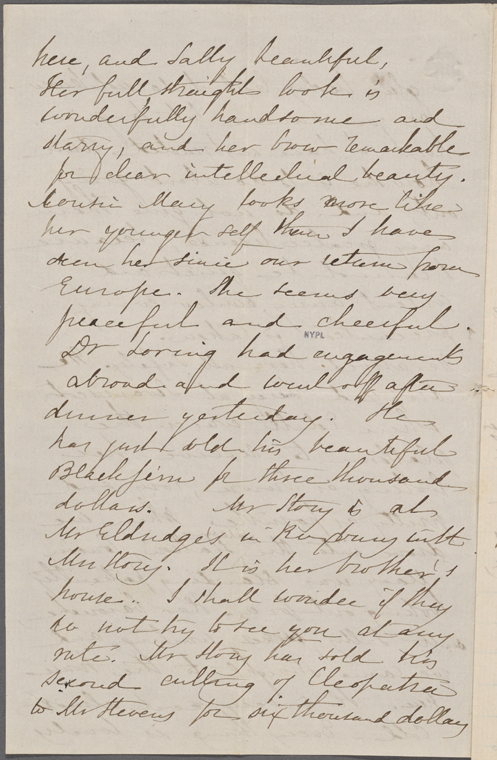 here, and Sally beautiful,
Her full straight look is
wonderfully handsome and
starry, and her brow remarkable
for clear intellectual beauty.
Cousin Mary looks more like
her younger self than I have
seen her since our return from
Europe. She seems very
peaceful and cheerful.
NYPL
Dr Loring had engagements
abroad and went off after
dinner yesterday. He
has just sold his beautiful
Blackfern for three thousand
dollars. Mr Story is at
Mr Eldredge's in Roxbury with
Mrs Story. It is her brother's
house. I shall wonder if they
do not try to see you at any
rate. Mr Story has sold his
second cutting of Cleopatra
to Mr Stevens for six thousand dollars